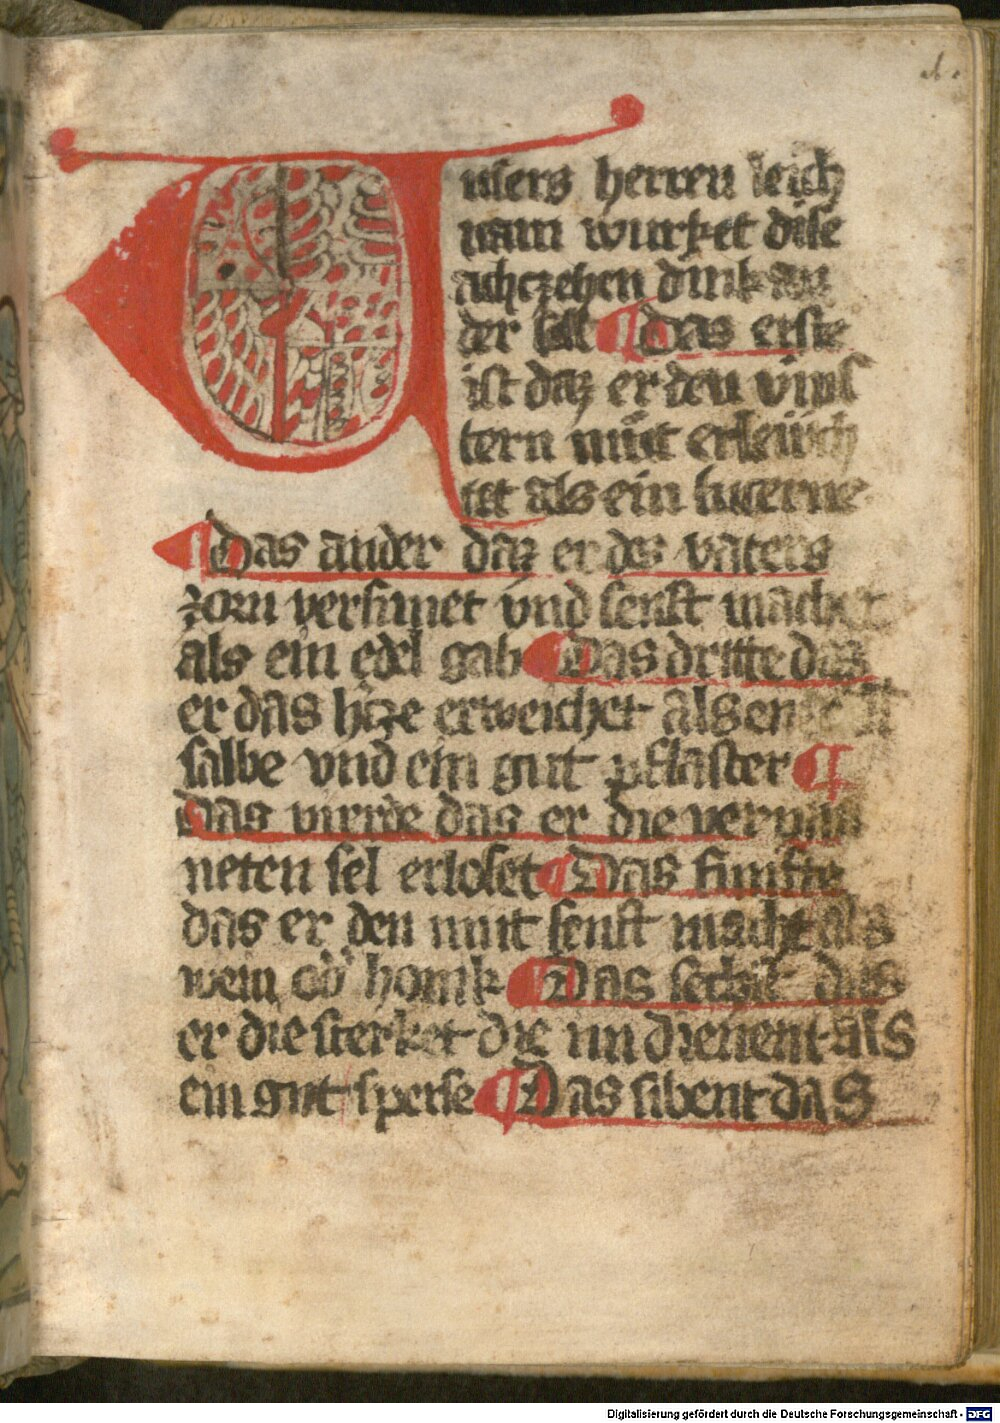 Vnsers herren leich
nam wurket dise
achczehen dink an
der sell ¶ Das erste
ist daz er den vins
tern müt erleüch
tet als ein lucerne
¶ Das ander daz er des vaters
zorn versunet vnd senft machet
als ein edel gab ¶ Das dritte das
er das hcze erweichet als
salbe vnd ein gut pflaster ¶
Das vierde das er die
neten sel erloset ¶ Das funfte
das er den mut senft macht als
wein honik ¶ Das sechst das
er die sterket die im dienent als
ein gut speise ¶ Das sibent das
Digitalisierung gefördert durch die Deutsche Forschungsgemeinschaft - DFG